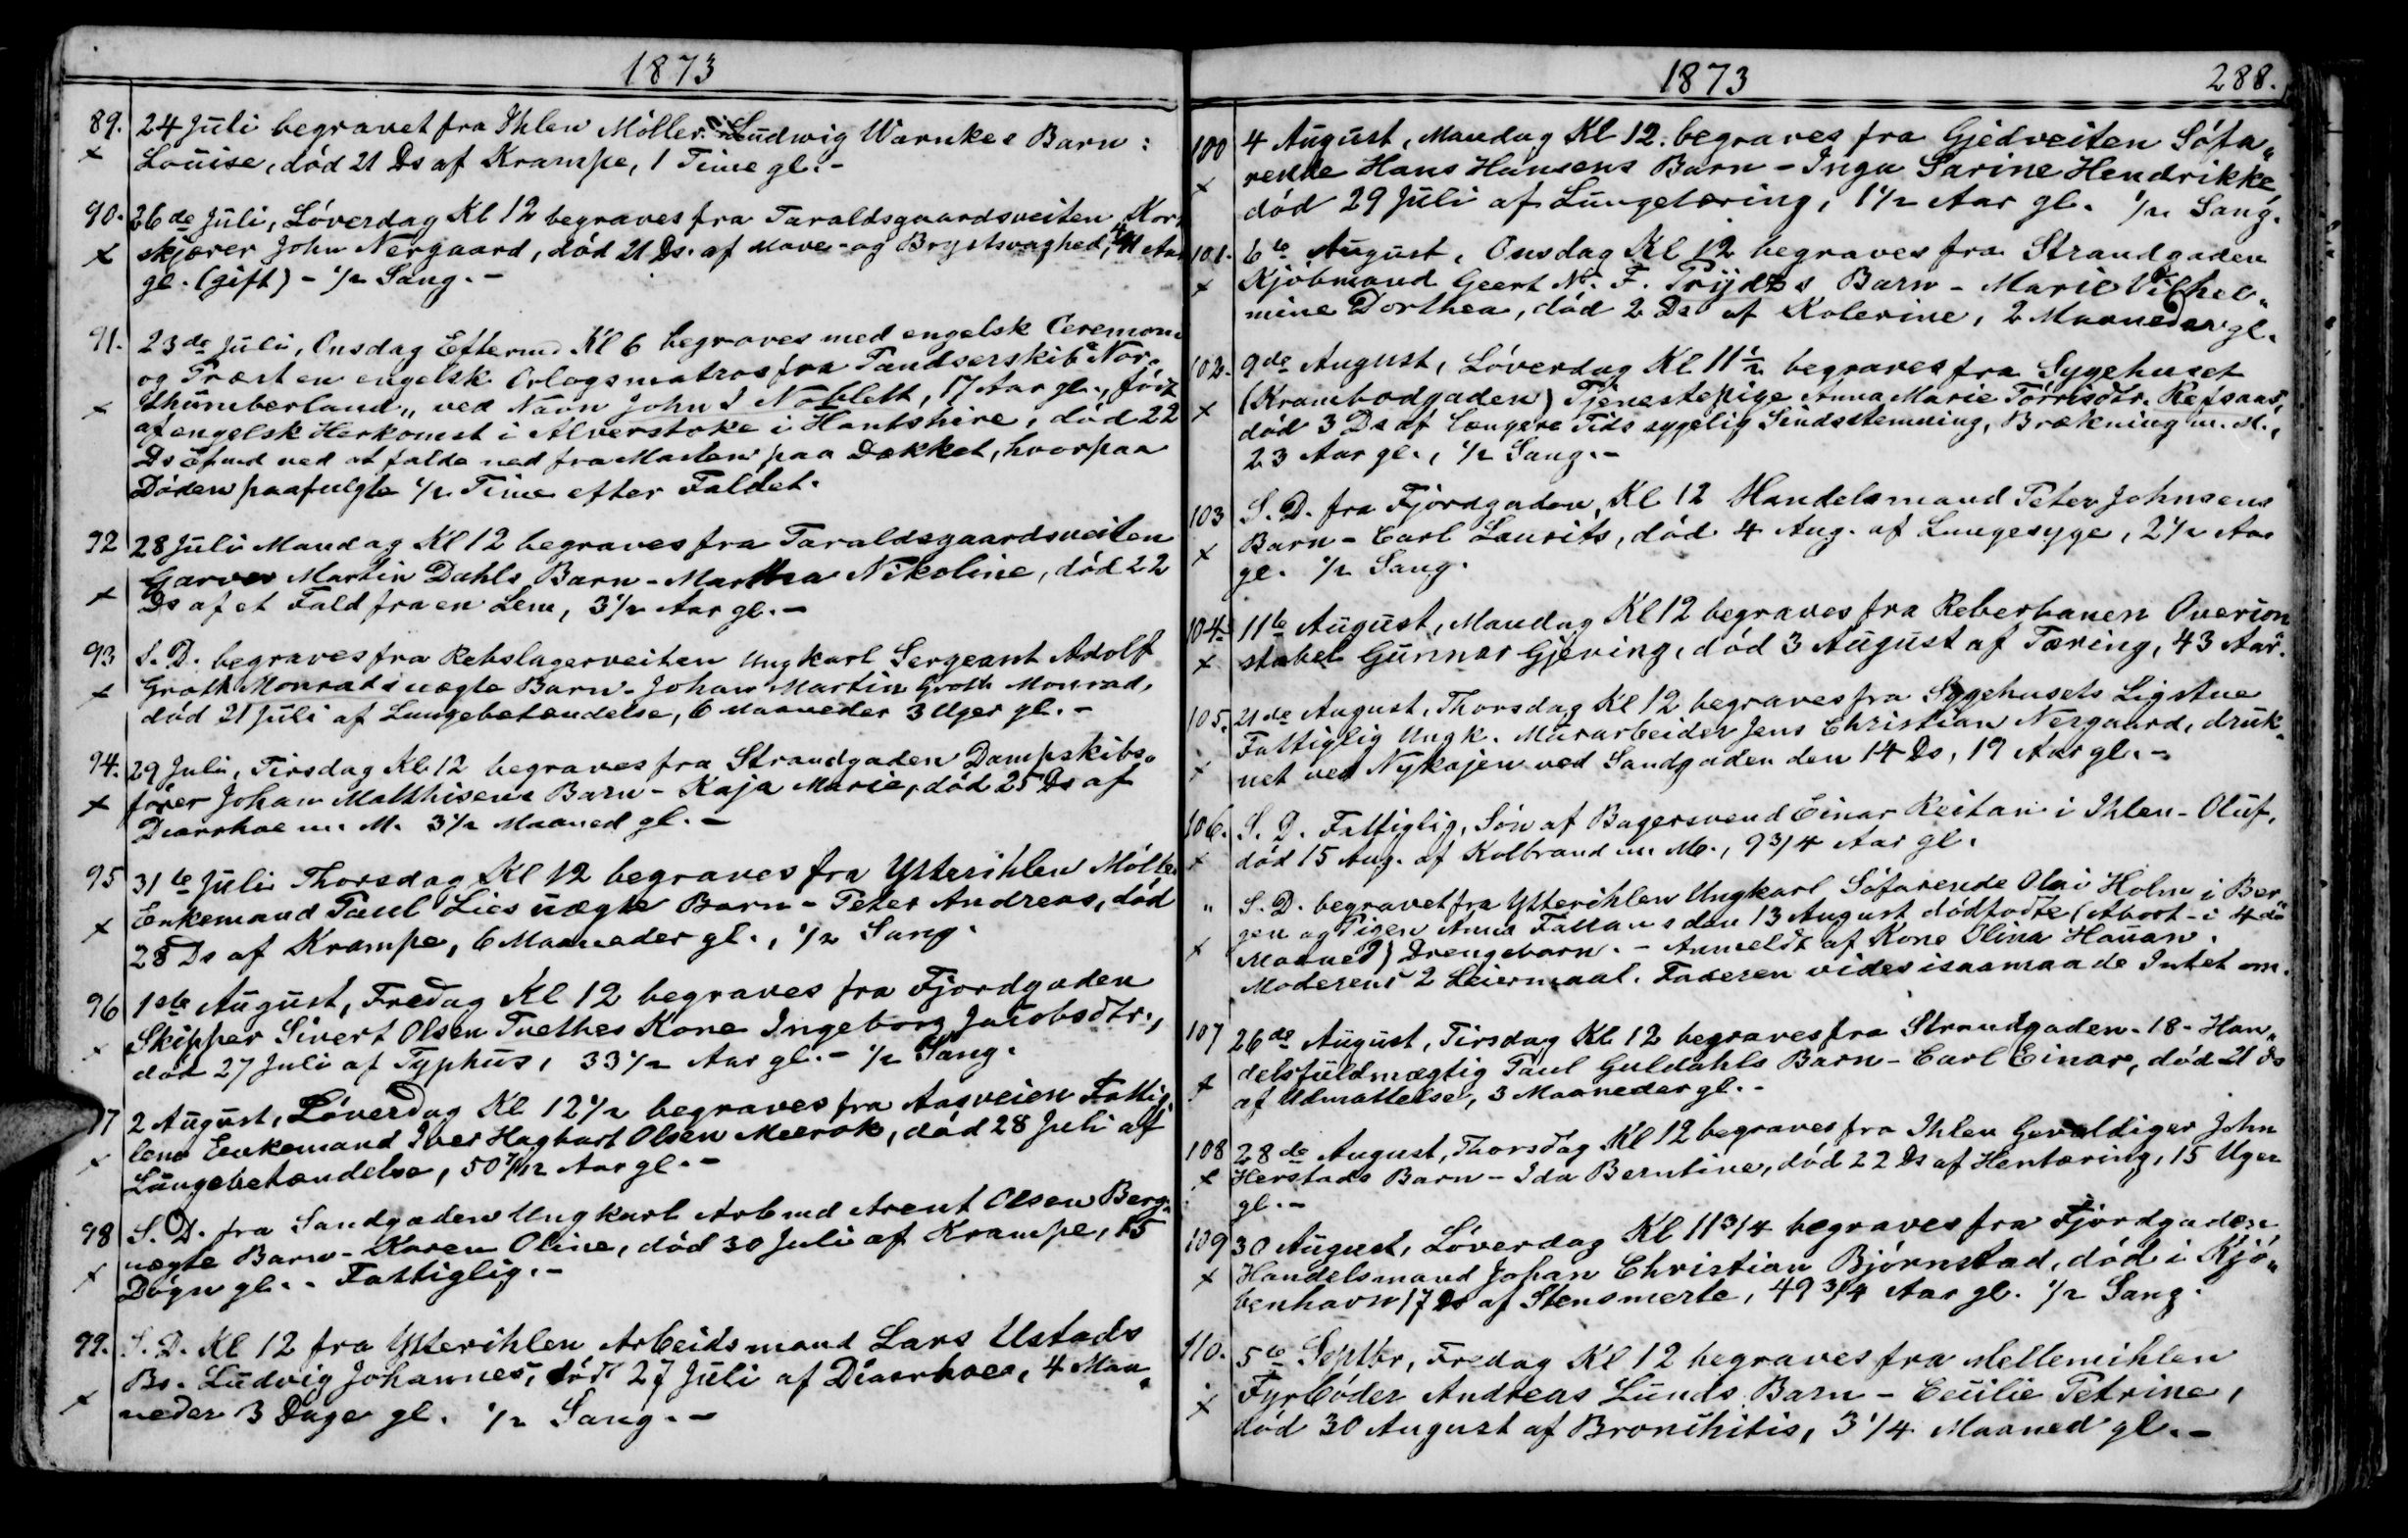 1873
89. 24 Juli begravet fra Ihlen Møller Ludwig Warnkes Barn:
x Louise, død 21 Ds af Krampe, 1 Time gl. -
90. 26de Juli, Løverdag Kl 12 begraves fra Taraldsgaardsveiten Kor„
x skjærer John Nergaard, død 21 Ds. af Mave- og Brystsvaghed, 41 Aar
gl. (gift) - 1/2 Sang. -
91. 23de Juli, Onsdag Efterm. Kl 6 begraves med engelsk Ceremoni
og Præst en engelsk Orlogsmatros fra Pandserskib „Nor„
x thumberland„ ved Navn John S Noblett, 17 Aar gl., født
af engelsk Herkomst i Alverstoke i Hantshire, død 22
Ds Efmd ved at falde ned fra Masten paa Dækket, hvorpaa
Døden paafulgte 1/2 Time efter Faldet.
92 28 Juli Mandag Kl 12 begraves fra Taraldsgaardsveiten
Garver Martin Dahls Barn - Martha Nikoline, død 22
x Ds af et Fald fra en Lem, 3 1/2 Aar gl. -
93 S. D. begraves fra Rebslagerveiten Ungkarl Sergeant Adolf
x Groth Monrads uægte Barn - Johan Martin Groth Monrad,
død 21 Juli af Lungebetændelse, 6 Maaneder 3 Uger gl. -
94. 29 Juli, Tirsdag Kl 12 begraves fra Strandgaden Dampskibs„
x fører Johan Matthisens Barn - Kaja Marie, død 25 Ds af
Diarrhoe m. M. 3 1/2 Maaned gl. -
95 31te Juli Thorsdag Kl 12 begraves fra Ytterihlen Møller
x Enkemand Paul Lies uægte Barn - Peter Andreas, død
28 Ds af Krampe, 6 Maaneder gl., 1/2 Sang.
96 1ste August, Fredag Kl 12 begraves fra Fjordgaden
x Skipper Sivert Olsen Tuethes Kone Ingeborg Jacobsdtr.,
død 27 Juli af Typhus, 33 1/2 Aar gl. - 1/2 Sang.
97 2 August, Løverdag Kl 12 1/2 begraves fra Aasveien Fattig„
x lem Enkemand Iver Hagbart Olsen Meerok, død 28 Juli af
Lungebetændelse, 50 7/12 Aar gl. -
98 S. D. fra Sandgaden Ungkarl Arbmd Arent Olsen Bergs
x uægte Barn - Karen Oline, død 30 Juli af Krampe, 15
Døgn gl. - Fattiglig. -
99. S. D. Kl 12 fra Ytterihlen Arbeidsmand Lars Ustads
x Bs. Ludvig Johannes, død 27 Juli af Diarrhoea, 4 Maa„
neder 3 Dage gl. 1/2 Sang. -
1873 288.
100 4 August, Mandag Kl 12. begraves fra Gjedveiten Søfa„
x rende Hans Hansens Barn - Inga Sarine Hendrikke,
død 29 Juli af Lungetæring, 1 1/2 Aar gl. 1/2 Sang.
101. 6te August, Onsdag Kl 12 begraves fra Strandgaden
x Kjøbmand Geert N. F. Prydz's Barn - Marie Vilhel„
mine Dorthea, død 2 Ds af Kolerine, 2 Maaneder gl.
102. 9de August, Løverdag Kl 11 1/2 begraves fra Sygehuset
x (Krambodgaden) Tjenestepige Anna Marie Tørrisdtr. Refsaas,
død 3 Ds af længere Tids sygelig Sindsstemning, Brækning m. M.,
23 Aar gl., 1/2 Sang. -
103 S. D. fra Fjordgaden, Kl 12 Handelsmand Peter Johnsens
x Barn - Carl Laurits, død 4 Aug. af Lungesyge, 2 1/2 Aar
gl. 1/2 Sang.
104. 11te August, Mandag Kl 12 begraves fra Reberbanen Overcon„
x stabel Gunnar Gjeving, død 3 August af Tæring, 43 Aar.
105. 21de August, Thorsdag Kl 12 begraves fra Sygehusets Ligstue
x Fattiglig Ungk. Murarbeider Jens Christian Nergaard, druk„
net ved Nykajen ved Sandgaden den 14 Ds, 19 Aar gl. -
106. S. D. Fattiglig, Søn af Bagersvend Einar Reitan i Ihlen - Oluf,
x død 15 Aug. af Kolbrand m. M., 9 3/4 Aar gl.
„ S. D. begravet fra Ytterihlen Ungkarl Søfarende Olai Holm i Ber„
gen og Pigen Anna Fallans den 13 August dødfødte (Abort - i 4de
x Maaned) Drengebarn. - Anmeldt af Kone Olina Hauan.
Moderens 2 Leiermaal. Faderen vides isaamaade Intet om.
107 26de August, Tirsdag Kl 12 begraves fra Strandgaden - 18 - Han„
x delsfuldmægtig Paul Guldahls Barn - Carl Einar, død 21 Ds
af Udmattelse, 3 Maaneder gl. -
108 28de August, Thorsdag Kl 12 begraves fra Ihlen Gevaldiger John
x Herstads Barn - Ida Berntine, død 22 Ds af Hentæring, 15 Uger
gl. -
109 30 August, Løverdag Kl 11 3/4 begraves fra Fjordgaden
x Handelsmand Johan Christian Bjørnstad, død i Kjø„
benhavn 17 Ds af Stensmerte, 49 3/4 Aar gl. 1/2 Sang.
110. 5te Septbr, Fredag Kl 12 begraves fra Mellemihlen
x Fyrbøder Andreas Lunds Barn - Cecilie Petrine,
død 30 August af Bronchitis, 3 1/4 Maaned gl. -